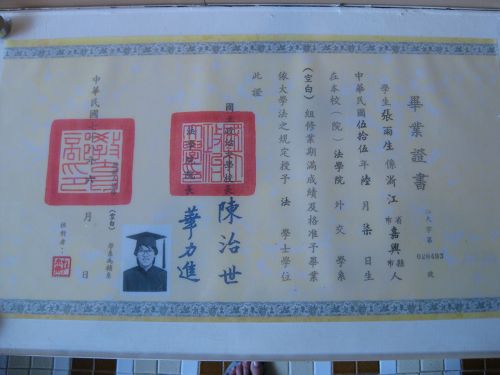 畢業證書
大字第 020493 號
學生張雨生係浙江省市嘉興縣市人
中華民國伍拾伍年陸月柒日生
在本校（院）法學院 外交 學系
（空白）組修業期滿成績及格准予畢業
依大學法之規定授予 法 學士學位
此證
國立政治大學校長 陳治世
法學院院長 華力進
（空白）學系為輔系
中華民國 年六月 日
核對者：